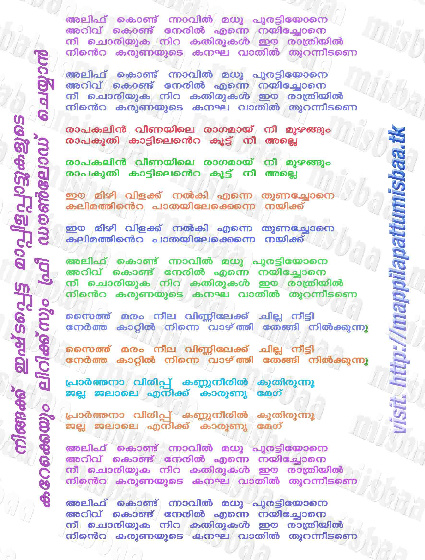 അലിഫ് കൊണ്ട് നാവിൽ മധു പുരട്ടിയോനെ
അറിവ് കൊണ്ട് നേരിൽ എന്നെ നയിച്ചോനെ
നീ ചൊരിയുക നിറ കതിരുകൾ ഈ രാത്രിയിൽ
നിൻെറ കരുണയുടെ കനഘ വാതിൽ തുറന്നീടണെ
അലിഫ് കൊണ്ട് നാവിൽ മധു പുരട്ടിയോനെ
അറിവ് കൊണ്ട് നേരിൽ എന്നെ നയിച്ചോനെ
നീ ചൊരിയുക നിറ കതിരുകൾ ഈ രാത്രിയിൽ
നിൻെറ കരുണയുടെ കനഘ വാതിൽ തുറന്നീടണെ
രാപകലിൻ വീണയിലെ രാഗമായ് നീ മുഴങ്ങും
രാപകുതി കാട്ടിലെൻെറ കൂട്ട് നീ അല്ലെ
രാപകലിൻ വീണയിലെ രാഗമായ് നീ മുഴങ്ങും
രാപകുതി കാട്ടിലെൻെറ കൂട്ട് നീ അല്ലെ
ഈ മിഴി വിളക്ക് നൽകി എന്നെ തുണച്ചോനെ
കലിമത്തിൻെറ പാതയിലേക്കെന്നെ നയിക്ക്
ഈ മിഴി വിളക്ക് നൽകി എന്നെ തുണച്ചോനെ
കലിമത്തിൻെറ പാതയിലേക്കെന്നെ നയിക്ക്
അലിഫ് കൊണ്ട് നാവിൽ മധു പുരട്ടിയോനെ
അറിവ് കൊണ്ട് നേരിൽ എന്നെ നയിച്ചോനെ
നീ ചൊരിയുക നിറ കതിരുകൾ ഈ രാത്രിയിൽ
നിൻെറ കരുണയുടെ കനഘ വാതിൽ തുറന്നീടണെ
സൈത്ത് മരം നീല വിണ്ണിലേക്ക് ചില്ല നീട്ടി
നേർത്ത കാറ്റിൽ നിന്നെ വാഴ്ത്തി തേങ്ങി നിൽക്കുന്നു
സൈത്ത് മരം നീല വിണ്ണിലേക്ക് ചില്ല നീട്ടി
നേർത്ത കാറ്റിൽ നിന്നെ വാഴ്ത്തി തേങ്ങി നിൽക്കുന്നു
പ്രാർത്ഥനാ വിരിപ്പ് കണ്ണുനീരിൽ കുതിരുന്നു
ജല്ല ജലാലെ എനിക്ക് കാരുണ്യ മേഗ്
പ്രാർത്ഥനാ വിരിപ്പ് കണ്ണുനീരിൽ കുതിരുന്നു
ജല്ല ജലാലെ എനിക്ക് കാരുണ്യ മേഗ്
അലിഫ് കൊണ്ട് നാവിൽ മധു പുരട്ടിയോനെ
അറിവ് കൊണ്ട് നേരിൽ എന്നെ നയിച്ചോനെ
നീ ചൊരിയുക നിറ കതിരുകൾ ഈ രാത്രിയിൽ
നിൻെറ കരുണയുടെ കനഘ വാതിൽ തുറന്നീടണെ
അലിഫ് കൊണ്ട് നാവിൽ മധു പുരട്ടിയോനെ
അറിവ് കൊണ്ട് നേരിൽ എന്നെ നയിച്ചോനെ
നീ ചൊരിയുക നിറ കതിരുകൾ ഈ രാത്രിയിൽ
നിൻെറ കരുണയുടെ കനഘ വാതിൽ തുറന്നീടണെ
നിങ്ങൾക്ക് ഇഷ്ടപ്പെട്ട മാപ്പിളപ്പാട്ടുകളുടെ
കരോക്കെയും ലിറിക്ക്സും ഫ്രീ ഡൗൺലോഡ് ചെയ്യാൻ
visit. http://mappilapattumisbaa.tk